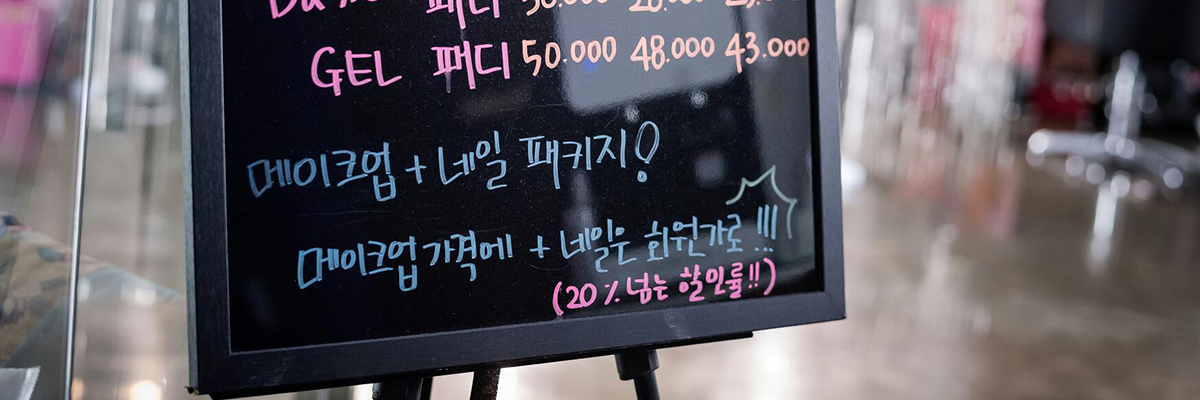 패디
GEL 패디 50.000 48.000 43.000
메이크업 + 네일 패키지!
메이크업 가격에 + 네일은 회원가로 !!!
(20% 넘는 할인률!!)